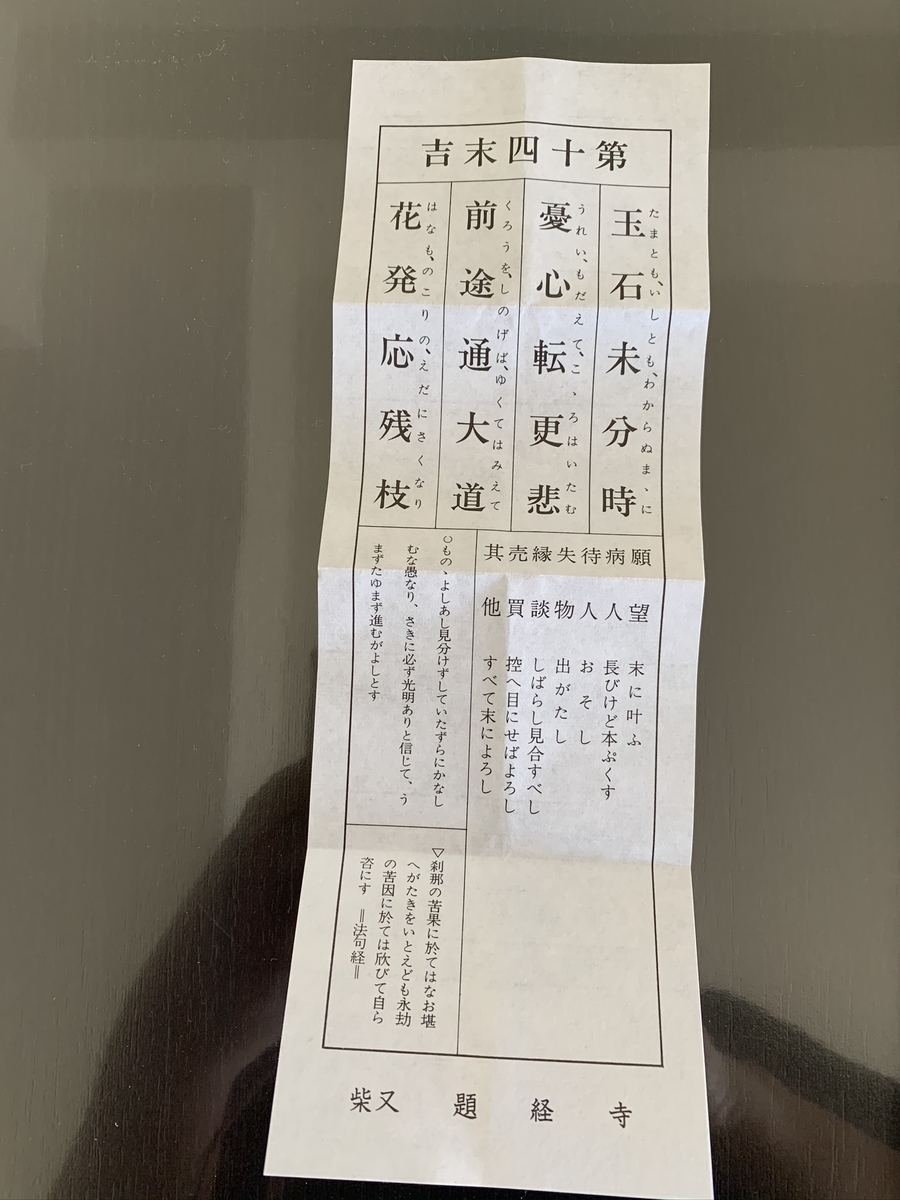 第十四末吉
玉石未分時
たまとも、いしとも、わからぬまゝに
憂心転更悲
うれい、もだえて、こゝろはいたむ
前途通大道
くろうを、しのげば、ゆくてはみえて
花発応残枝
はなも、のこりの、えだにさくなり
願望 末に叶ふ
病人 長びけど本ぷくす
待人 おそし
失物 出がたし
縁談 しばらし見合すべし
売買 控へ目にせばよろし
其他 すべて末によろし
○ものゝよしあし見分けずしていたずらにかなし
むな愚なり、さきに必ず光明ありと信じて、う
まずたゆまず進むがよしとす
▽刹那の苦果に於てはなお堪
へがたきをいとえども永劫
の苦因に於ては欣びて自ら
咨にす ＝法句経＝
柴又 題経寺